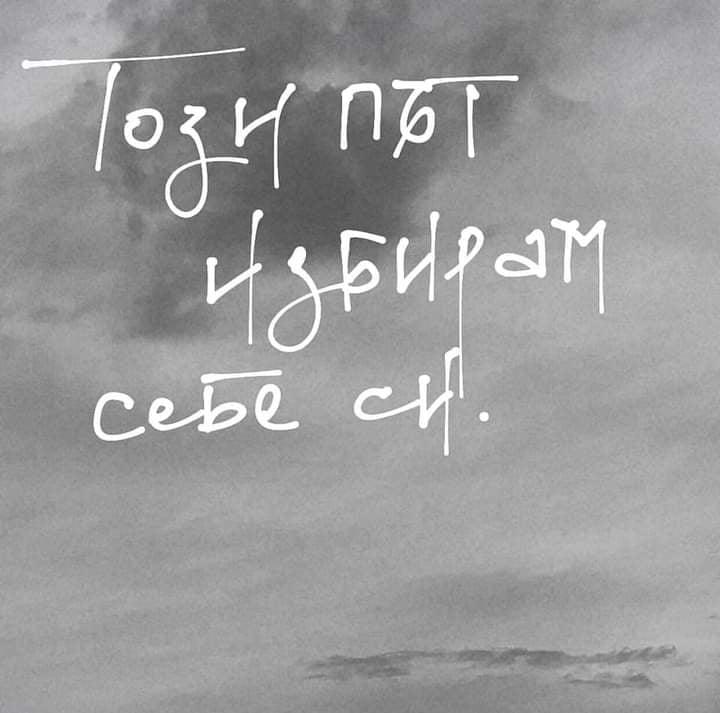 Този път
избирам
себе си.